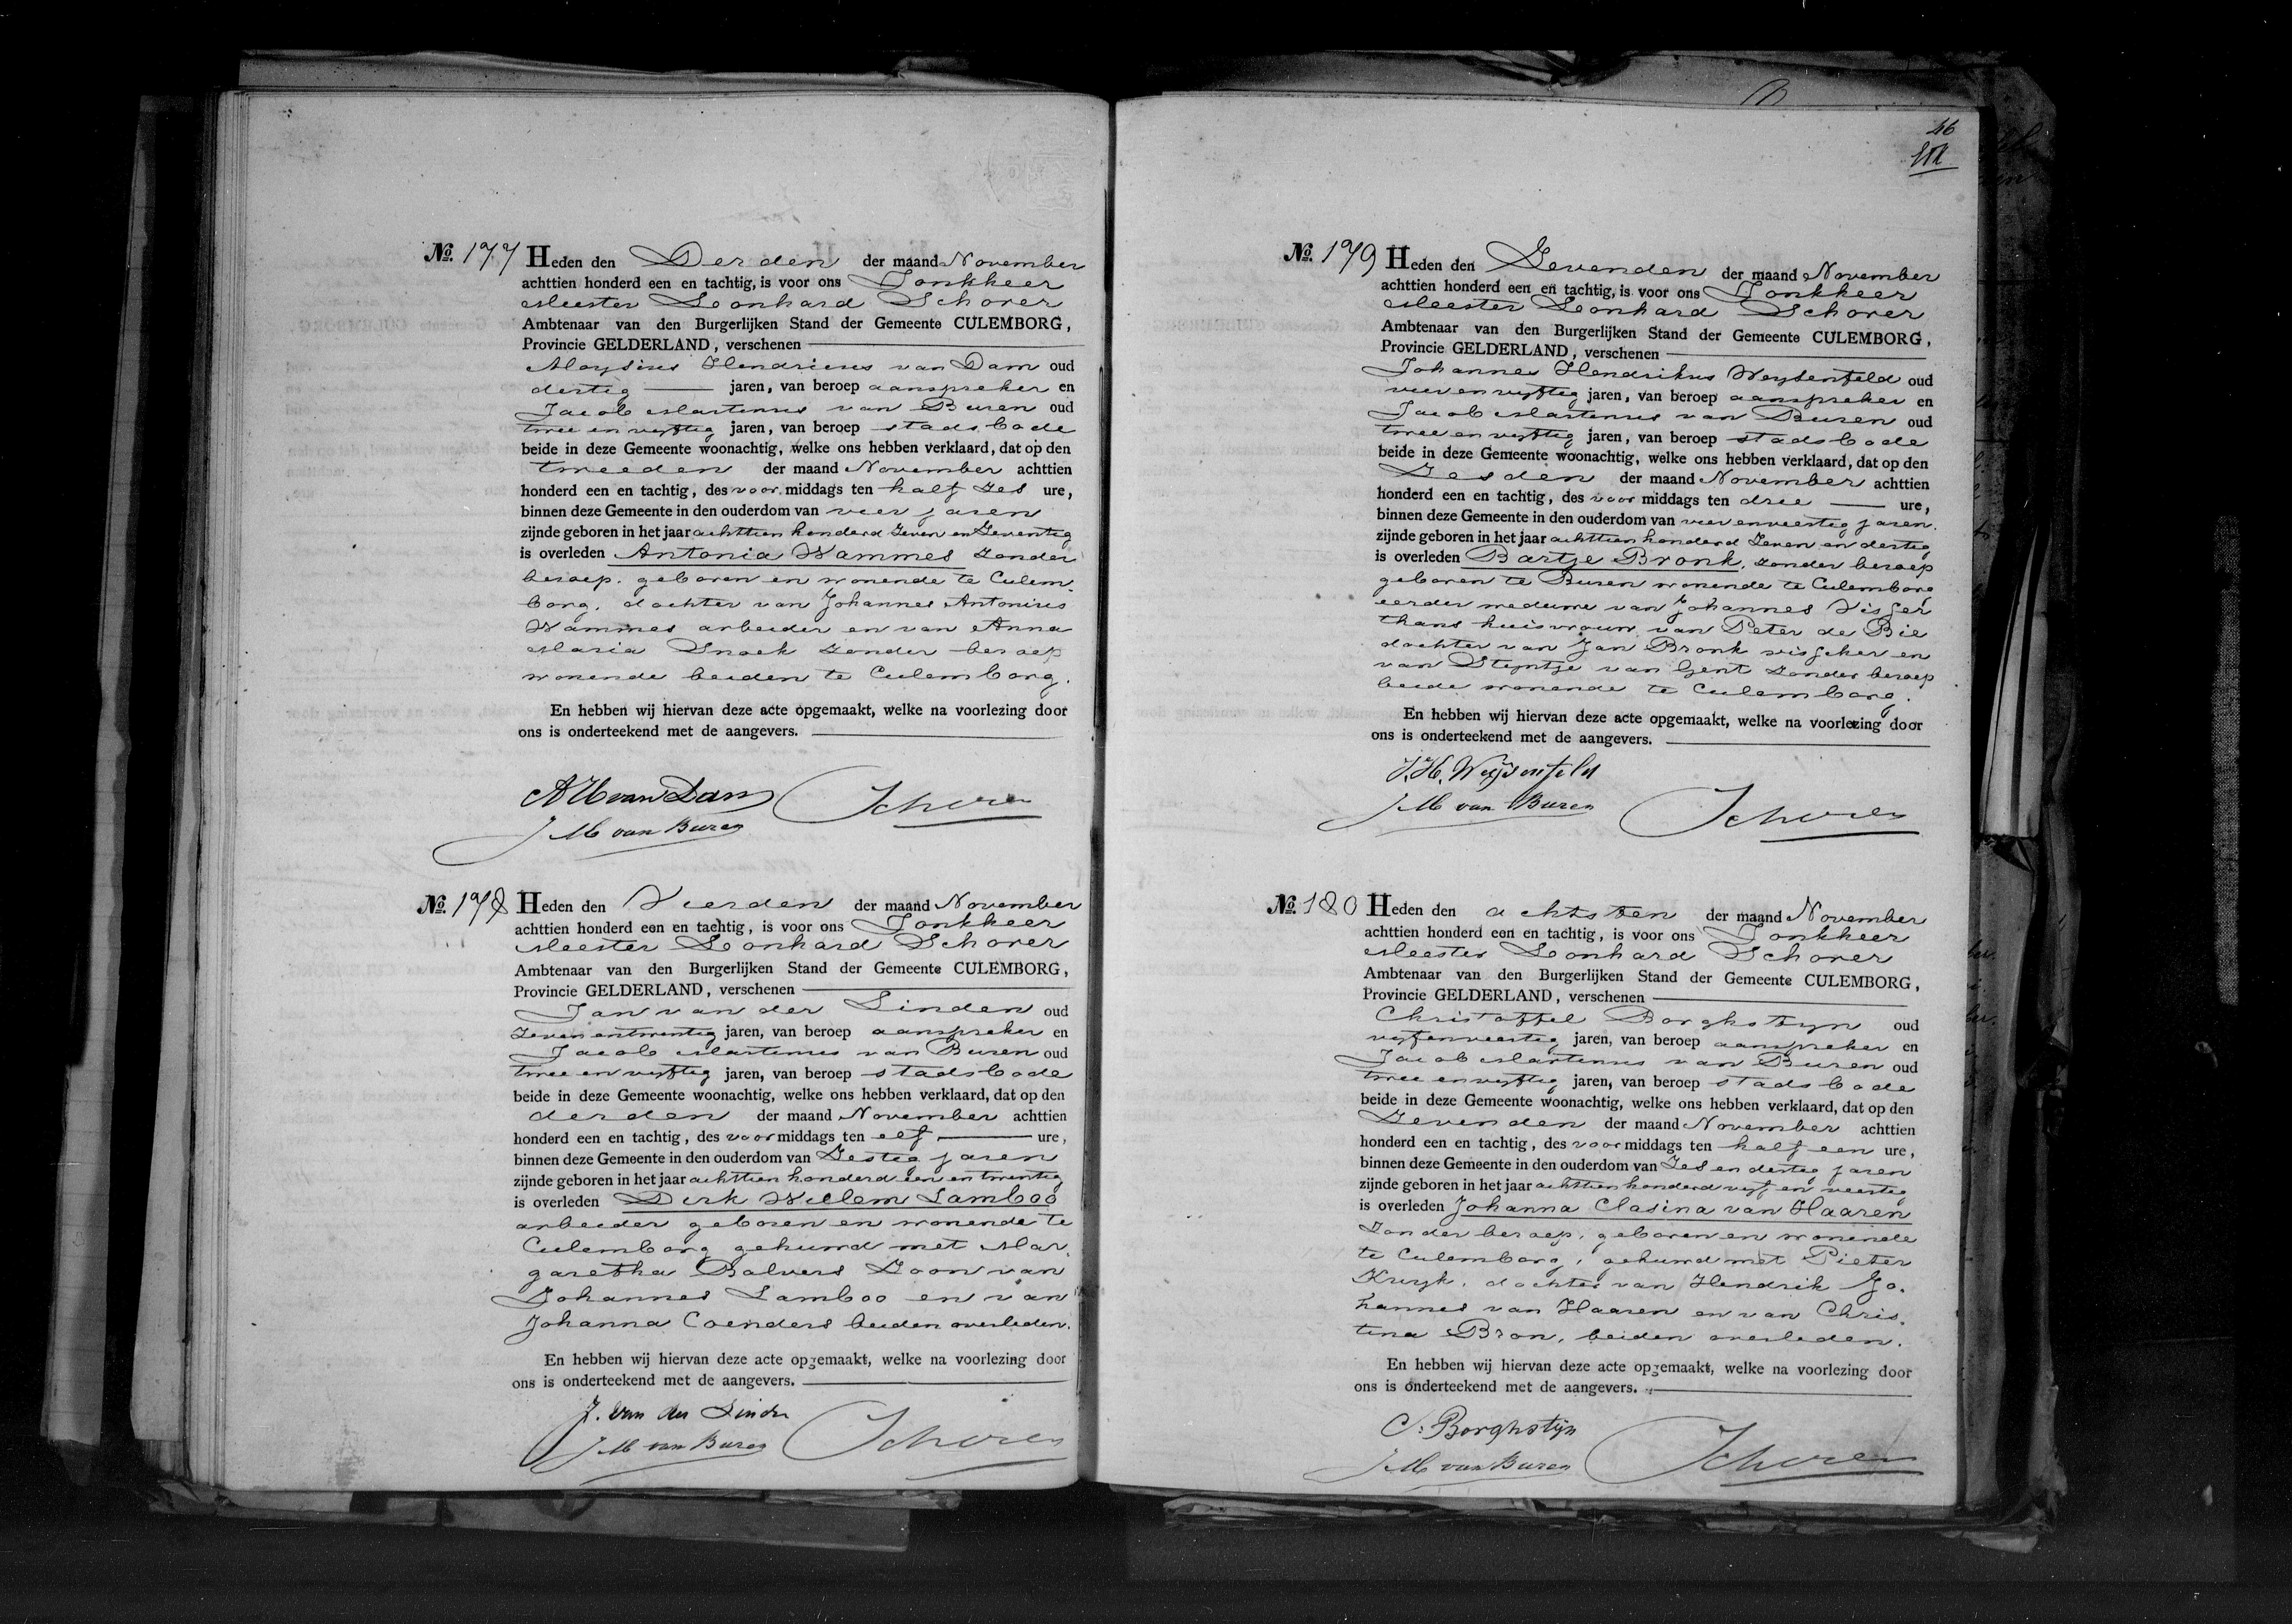 No. 177 Heden den Derden der maand November
achttien honderd een en tachtig, is voor ons Jonkheer
Meester Leonhard Schorer
Ambtenaar van den Burgerlijken Stand der Gemeente CULEMBORG,
Provincie GELDERLAND, verschenen
Aloysius Hendricus van Dam oud
dertig jaren, van beroep aanspreker en
Jacob Martinus van Buren oud
twee en vyftig jaren, van beroep stadsbode
beide in deze Gemeente woonachtig, welke ons hebben verklaard, dat op den
tweeden der maand November achttien
honderd een en tachtig, des voor middags ten half zes ure,
binnen deze Gemeente in den ouderdom van vier jaren
zijnde geboren in het jaar achttien honderd zeven en zeventig
is overleden Antonia Wammes zonder
beroep. geboren en wonende te Culem-
borg. dochter van Johannes Antonius
Wammes arbeider en van Anna
Maria Snoek zonder beroep
wonende beiden te Culemborg.
En hebben wij hiervan deze acte opgemaakt, welke na voorlezing door
ons is onderteekend met de aangevers.
AH van Dam Schorer
JM van Buren
No. 178 Heden den Vierden der maand November
achttien honderd een en tachtig, is voor ons Jonkheer
Meester Leonhard Schorer
Ambtenaar van den Burgerlijken Stand der Gemeente CULEMBORG,
Provincie GELDERLAND, verschenen
Jan van der Linden oud
zeven entwentig jaren, van beroep aanspreker en
Jacob Martinus van Buren oud
twee en vyftig jaren, van beroep stadsbode
beide in deze Gemeente woonachtig, welke ons hebben verklaard, dat op den
derden der maand November achttien
honderd een en tachtig, des voor middags ten elf ure,
binnen deze Gemeente in den ouderdom van Zestig jaren
zijnde geboren in het jaar achttien honderd een en twentig
is overleden Dirk Willem Lamboo
arbeider geboren en wonende te
Culemborg gehuwd met Mar-
garetha Balvers Zoon van
Johannes Lamboo en van
Johanna Coenders beiden overleden.
En hebben wij hiervan deze acte opgemaakt, welke na voorlezing door
ons is onderteekend met de aangevers.
J. van der Linden Schorer
JM van Buren
46
No. 179 Heden den Zevenden der maand November
achttien honderd een en tachtig, is voor ons Jonkheer
Meester Leonhard Schorer
Ambtenaar van den Burgerlijken Stand der Gemeente CULEMBORG,
Provincie GELDERLAND, verschenen
Johannes Hendrikus Weysenfeld oud
vier en vyftig jaren, van beroep aanspreker en
Jacob Martinus van Buren oud
twee en vyftig jaren, van beroep stadsbode
beide in deze Gemeente woonachtig, welke ons hebben verklaard, dat op den
Zesden der maand November achttien
honderd een en tachtig, des voor middags ten drie ure,
binnen deze Gemeente in den ouderdom van vier en veertig jaren.
zijnde geboren in het jaar achttien honderd zeven en dertig
is overleden Bartje Bronk, zonder beroep
geboren te Buren wonende te Culemborg
eerder weduwe van Johannes Visser
thans huisvrouw van Peter de Bie
dochter van Jan Bronk visscher en
van Styntje van Gent zonder beroep
beide wonende te Culemborg.
En hebben wij hiervan deze acte opgemaakt, welke na voorlezing door
ons is onderteekend met de aangevers.
J. H. Weijsenfeld
JM van Buren Schorer
No. 180 Heden den achtsten der maand November
achttien honderd een en tachtig, is voor ons Jonkheer
Meester Leonhard Schorer
Ambtenaar van den Burgerlijken Stand der Gemeente CULEMBORG,
Provincie GELDERLAND, verschenen
Christoffel Borghstyn oud
vyfenveertig jaren, van beroep aanspreker en
Jacob Martinus van Buren oud
twee en vyftig jaren, van beroep stadsbode
beide in deze Gemeente woonachtig, welke ons hebben verklaard, dat op den
Zevenden der maand November achttien
honderd een en tachtig, des voor middags ten half een ure,
binnen deze Gemeente in den ouderdom van Zes en dertig jaren
zijnde geboren in het jaar achttien honderd vyf en veertig
is overleden Johanna Clasina van Haaren
Zonder beroep, geboren en wonende
te Culemborg, gehuwd met Pieter
Kruyk. dochter van Hendrik Jo-
hannes van Haaren en van Chris-
tina Bron, beiden overleden.
En hebben wij hiervan deze acte opgemaakt, welke na voorlezing door
ons is onderteekend met de aangevers.
C. Borghstijn
JM van Buren Schorer